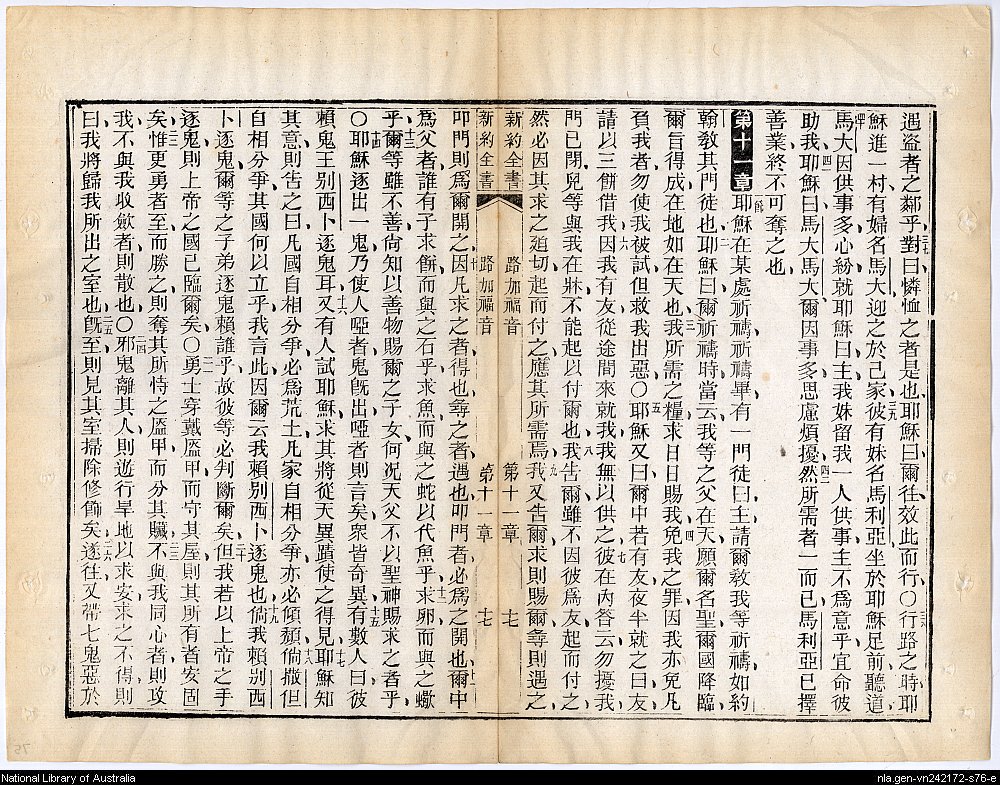 遇盜者之鄰乎對曰憐恤之者是也耶穌曰爾往效此而行〇行路之時耶
穌進一村有婦名馬大迎之於己家彼有妹名馬利亞坐於耶穌足前聽道
馬大因供事多心紛就耶穌曰主我妹留我一人供事主不爲意乎宜命彼
助我耶穌曰馬大馬大爾因事多思慮煩擾然所需者一而已馬利亞已擇
善業終不可奪之也
第十一章耶穌在某處祈禱祈禱畢有一門徒曰主請爾敎我等祈禱如約
翰敎其門徒也耶穌曰爾祈禱時當云我等之父在天願爾名聖爾國降臨
爾旨得成在地如在天也我所需之糧求日日賜我免我之罪因我亦免凡
負我者勿使我被試但救我出惡〇耶穌又曰爾中若有友夜半就之曰友
請以三餅借我因我有友從途間來就我我無以供之彼在內答云勿擾我
門已閉兒等與我在牀不能起以付爾也我告爾雖不因彼爲友起而付之
然必因其求之迫切起而付之應其所需焉我又告爾求則賜爾尋則遇之
新約全書 路加福音 第十一章 七
新約全書 路加福音 第十一章 七
叩門則爲爾開之因凡求之者得也尋之者遇也叩門者必爲之開也爾中
爲父者誰有子求餅而與之石乎求魚而與之蛇以代魚乎求卵而與之蠍
乎爾等雖不善尙知以善物賜爾之子女何況天父不以聖神賜求之者乎
〇耶穌逐出一鬼乃使人啞者鬼旣出啞者則言矣衆皆奇異有數人曰彼
賴鬼王別西卜逐鬼耳又有人試耶穌求其將從天異蹟使之得見耶穌知
其意則告之曰凡國自相分爭必爲荒土凡家自相分爭亦必傾頹倘撒但
自相分爭其國何以立乎我言此因爾云我賴別西卜逐鬼也倘我賴別西
卜逐鬼爾等之子弟逐鬼賴誰乎故彼等必判斷爾矣但我若以上帝之手
逐鬼則上帝之國已臨爾矣〇勇士穿戴盔甲而守其屋則其所有者安固
矣惟更勇者至而勝之則奪其所恃之盔甲而分其贓不與我同心者則攻
我不與我收斂者則散也〇邪鬼離其人則遊行旱地以求安求之不得則
曰我將歸我所出之室也旣至則見其室掃除修飾矣遂往又帶七鬼惡於
National Library of Australia
nla.gen-vn242172-s76-e